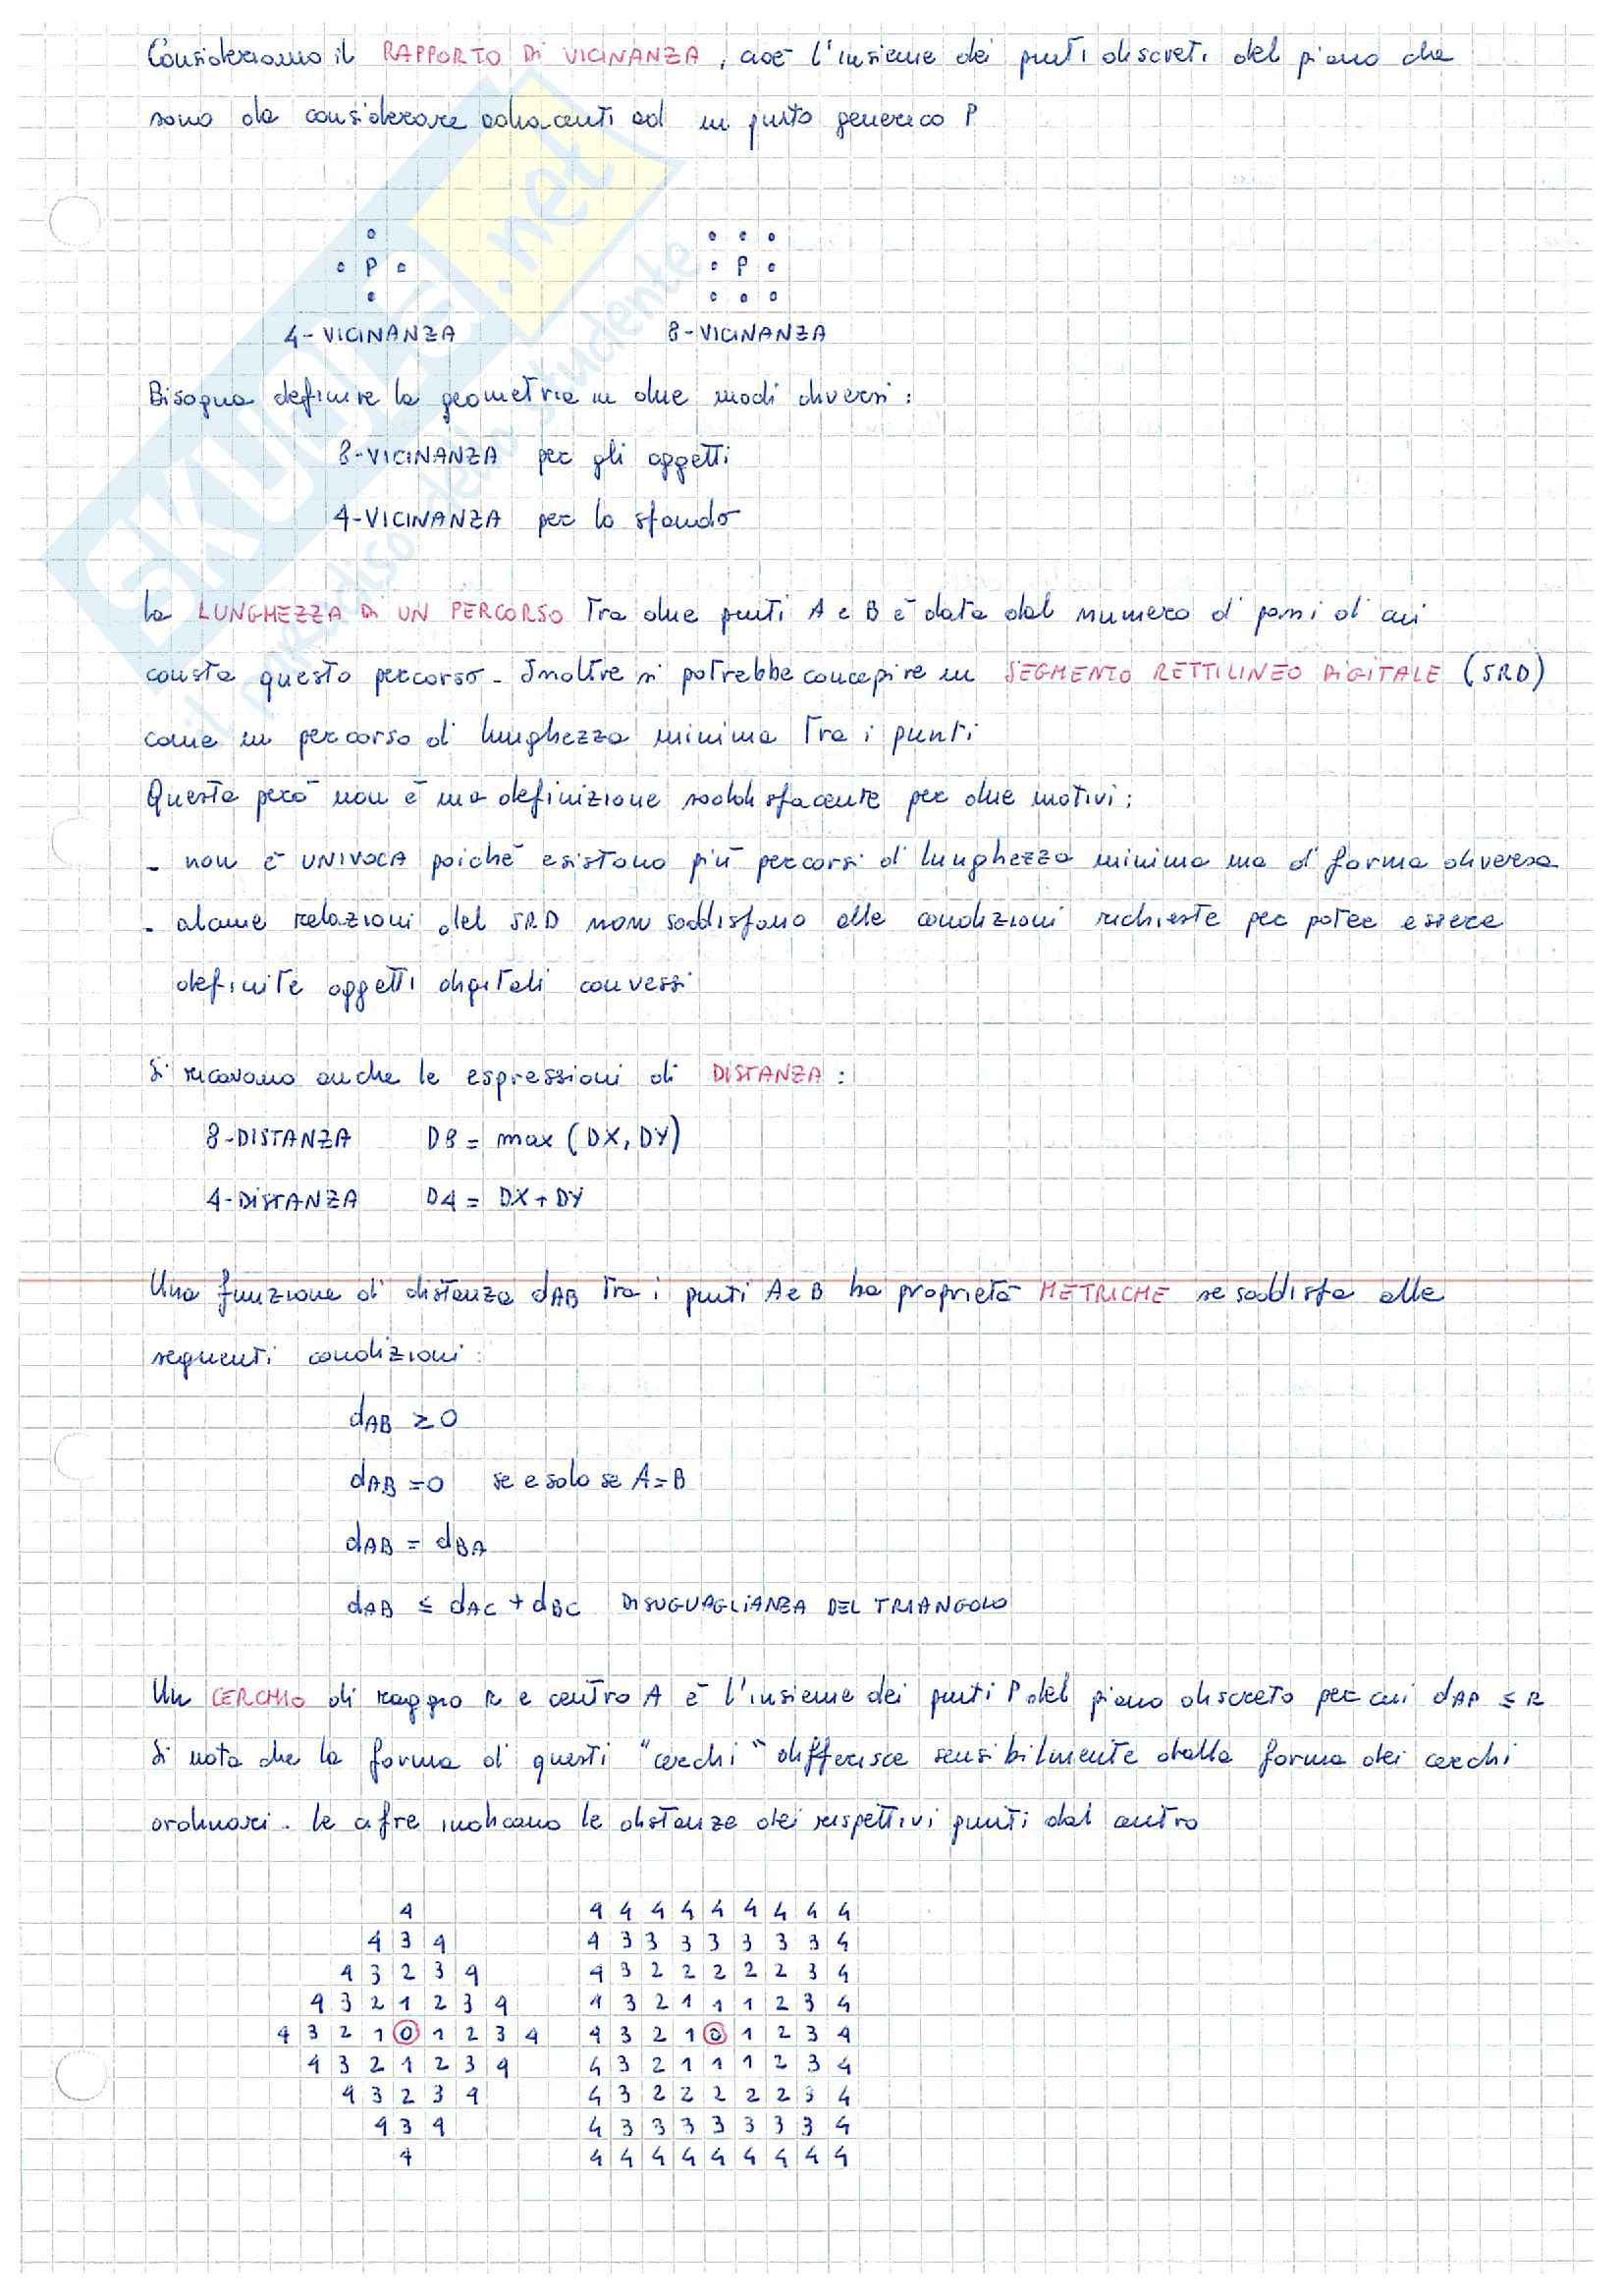 Consideriamo il RAPPORTO DI VICINANZA, cioè l'insieme dei punti discreti del piano che
sono da considerare adiacenti ad un punto generico P
P P
4-VICINANZA 8-VICINANZA
Bisogna definire la geometria in due modi diversi:
8-VICINANZA per gli oggetti
4-VICINANZA per lo sfondo
La LUNGHEZZA DI UN PERCORSO tra due punti A e B è data dal numero di passi di cui
consta questo percorso. Inoltre si potrebbe concepire un SEGMENTO RETTILINEO DIGITALE (SRD)
come un percorso di lunghezza minima tra i punti
Questa però non è una definizione soddisfacente per due motivi:
- non è UNIVOCA poiché esistono più percorsi di lunghezza minima ma di forma diversa
- alcune relazioni del SRD non soddisfano alle condizioni richieste per poter essere
definite oggetti digitali convessi
Si ricavano anche le espressioni di DISTANZA:
8-DISTANZA D8 = max (DX, DY)
4-DISTANZA D4 = DX + DY
Una funzione di distanza dAB tra i punti A e B ha proprietà METRICHE se soddisfa alle
seguenti condizioni:
dAB ≥ 0
dAB = 0 se e solo se A = B
dAB = dBA
dAB ≤ dAC + dBC DISUGUAGLIANZA DEL TRIANGOLO
Un CERCHIO di raggio R e centro A è l'insieme dei punti P del piano discreto per cui dAP ≤ R
Si nota che la forma di questi "cerchi" differisce sensibilmente dalla forma dei cerchi
ordinari. Le cifre indicano le distanze dei rispettivi punti dal centro
4 4 4 4 4 4 4 4 4 4
4 3 4 4 3 3 3 3 3 3 3 4
4 3 2 3 4 4 3 2 2 2 2 2 3 4
4 3 2 1 2 3 4 4 3 2 1 1 1 2 3 4
4 3 2 1 0 1 2 3 4 4 3 2 1 0 1 2 3 4
4 3 2 1 2 3 4 4 3 2 1 1 1 2 3 4
4 3 2 3 4 4 3 2 2 2 2 2 3 4
4 3 4 4 3 3 3 3 3 3 3 4
4 4 4 4 4 4 4 4 4 4
SKUOLA.net
il paradiso dello studente